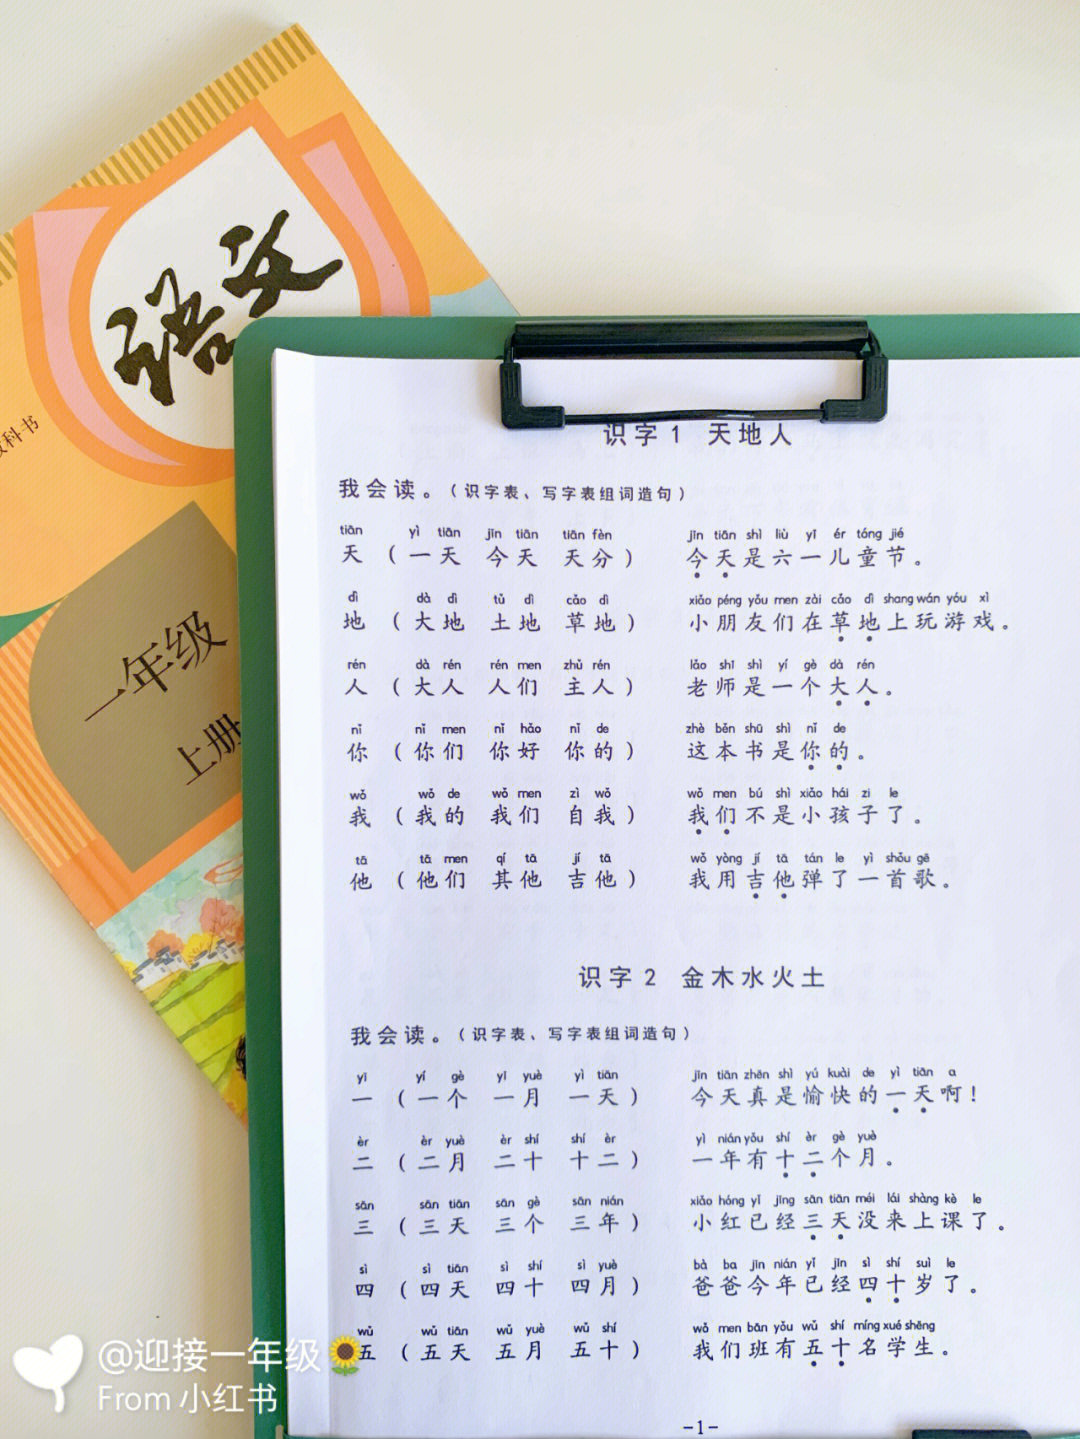 语文
教科书
一年级
上册
识字1 天地人
我会读。（识字表、写字表组词造句）
tiān yì tiān jīn tiān tiān fèn jīn tiān shì liù yī ér tóng jié
天 （一天 今天 天分） 今天是六一儿童节。
dì dà dì tǔ dì cǎo dì xiǎo péng yǒu men zài cǎo dì shang wán yóu xì
地 （大地 土地 草地） 小朋友们在草地上玩游戏。
rén dà rén rén men zhǔ rén lǎo shī shì yí gè dà rén
人 （大人 人们 主人） 老师是一个大人。
nǐ nǐ men nǐ hǎo nǐ de zhè běn shū shì nǐ de
你 （你们 你好 你的） 这本书是你的。
wǒ wǒ de wǒ men zì wǒ wǒ men bú shì xiǎo hái zi le
我 （我的 我们 自我） 我们不是小孩子了。
tā tā men qí tā jí tā wǒ yòng jí tā tán le yì shǒu gē
他 （他们 其他 吉他） 我用吉他弹了一首歌。
识字2 金木水火土
我会读。（识字表、写字表组词造句）
yī yí gè yī yuè yì tiān jīn tiān zhēn shì yú kuài de yì tiān a
一 （一个 一月 一天） 今天真是愉快的一天啊！
èr èr yuè èr shí shí èr yì nián yǒu shí èr gè yuè
二 （二月 二十 十二） 一年有十二个月。
sān sān tiān sān gè sān nián xiǎo hóng yǐ jīng sān tiān méi lái shàng kè le
三 （三天 三个 三年） 小红已经三天没来上课了。
sì sì tiān sì shí sì yuè bà ba jīn nián yǐ jīn sì shí suì le
四 （四天 四十 四月） 爸爸今年已经四十岁了。
wǔ wǔ tiān wǔ yuè wǔ shí wǒ men bān yǒu wǔ shí míng xué shēng
五 （五天 五月 五十） 我们班有五十名学生。
-1-
@迎接一年级🌻
From 小红书